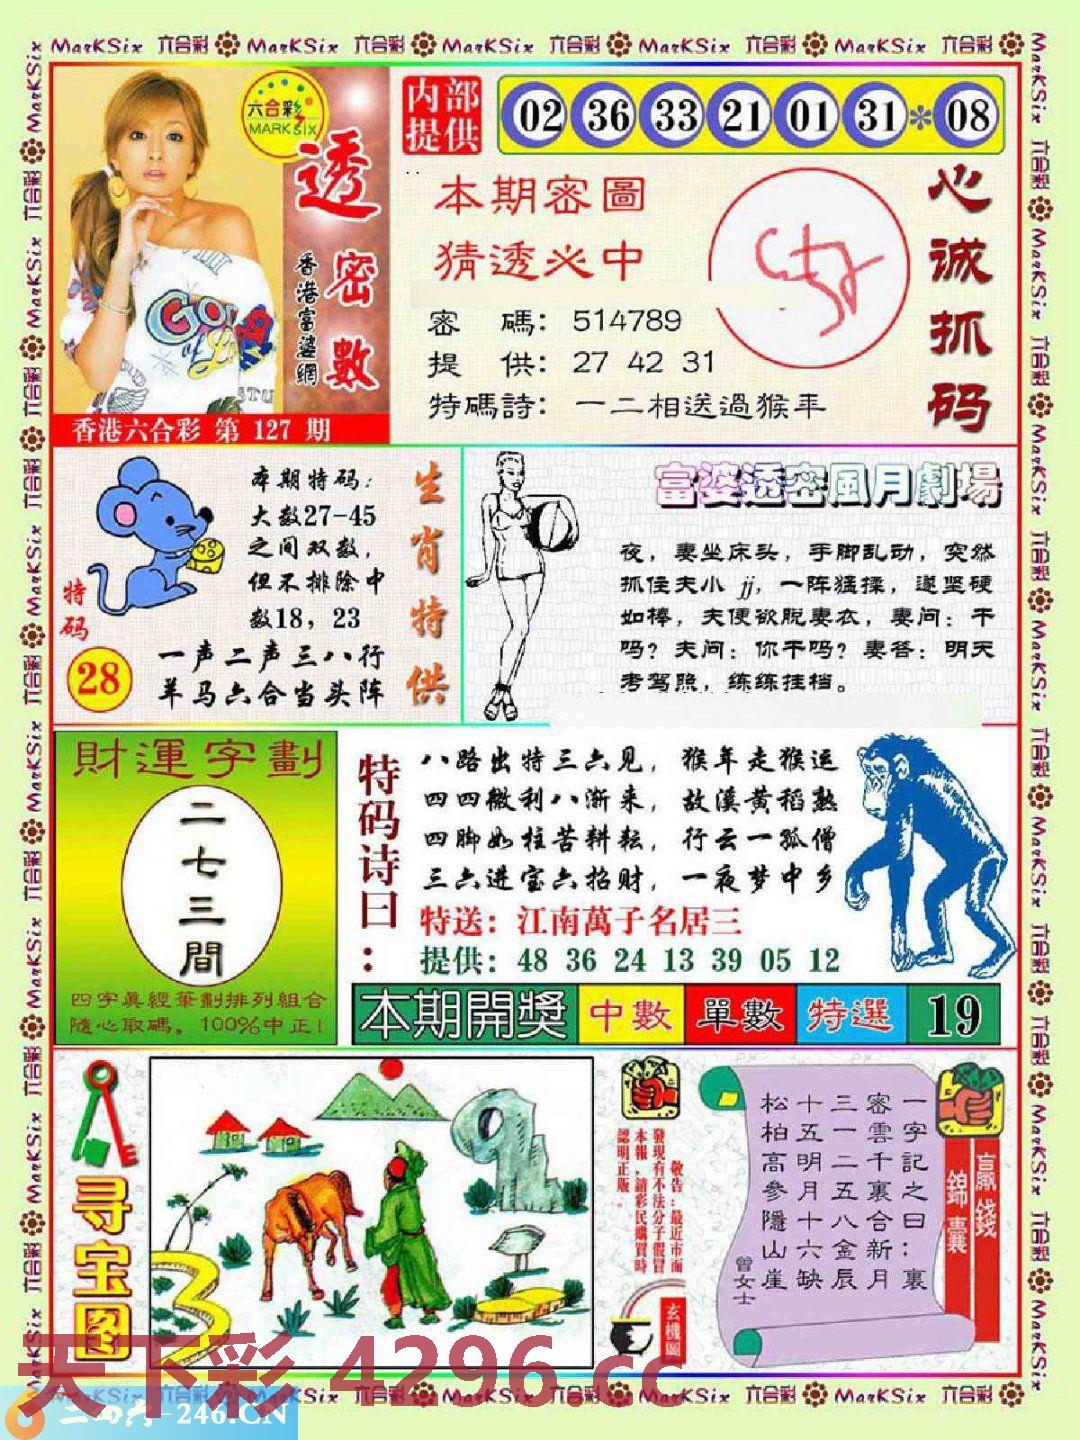 MarKSix 六合彩 MarKSix 六合彩 MarKSix 六合彩 MarKSix 六合彩 MarKSix 六合彩
六合彩
MARK SIX
透密數
香港富婆網
香港六合彩 第 127 期
内部
提供
02 36 33 21 01 31 * 08
本期密圖
猜透必中
密 碼: 514789
提 供: 27 42 31
特碼詩: 一二相送過猴年
心诚抓码
特码
28
本期特码:
大数27-45
之间双数,
但不排除中
数18, 23
一声二声三八行
羊马六合当头阵
生肖特供
富婆透密風月劇場
夜, 妻坐床头, 手脚乱动, 突然
抓住夫小 jj, 一阵猛揉, 遂坚硬
如棒, 夫便欲脱妻衣, 妻问: 干
吗? 夫问: 你干吗? 妻答: 明天
考驾照, 练练挂档。
財運字劃
二
七
三
間
四字真經筆劃排列組合
隨心取碼。100%中正!
特码诗曰:
八路出特三六见, 猴年走猴运
四四微利八渐来, 故溪黄稻熟
四脚如柱苦耕耘, 行云一孤僧
三六进宝六招财, 一夜梦中乡
特送: 江南萬子名居三
提供: 48 36 24 13 39 05 12
本期開獎 中數 單數 特選 19
寻宝图
敬告: 最近市面
發現有不法分子假冒
本報, 請彩民購買時
認明正版。
玄機圖
一字記之曰: 裏
密雲千裏合新月
三一二五八金辰
十五明月十六缺
松柏高參隱山崖
曾女士
贏錢
錦囊
天下彩 4296.cc
-246.CN
MarKSix 六合彩 MarKSix 六合彩 MarKSix 六合彩 MarKSix 六合彩